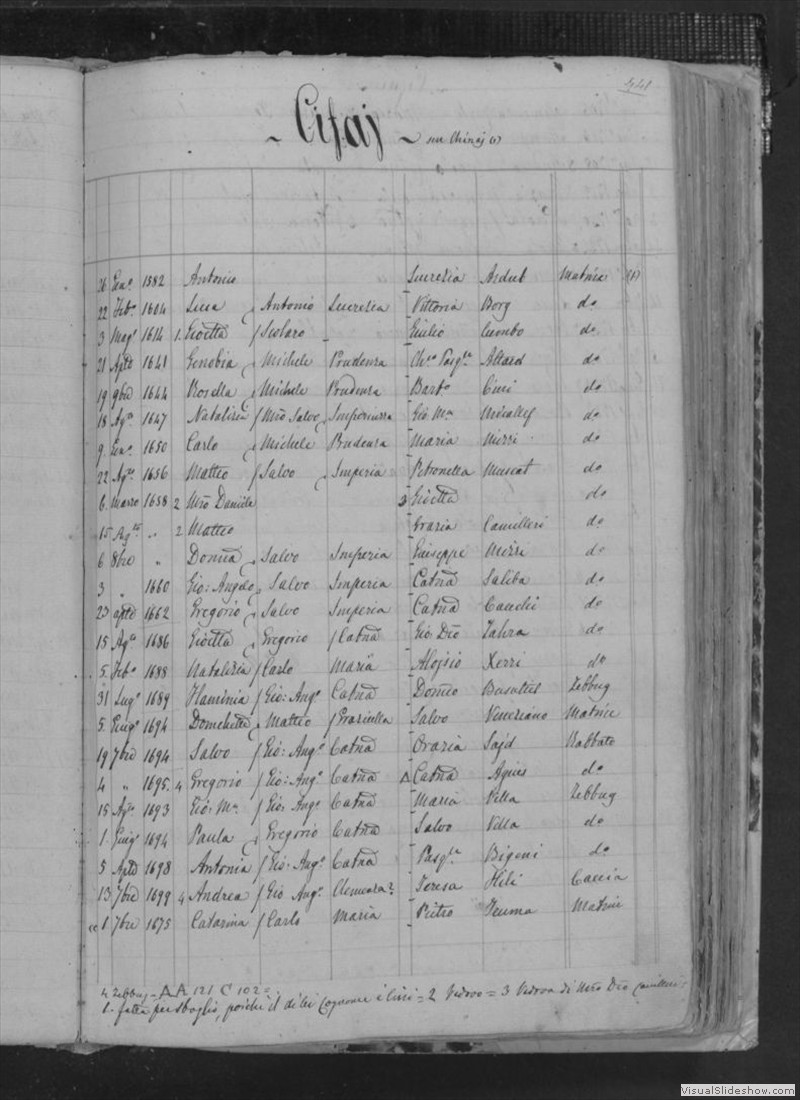 441
Cifaj
26 Gen.o 1582 Antonio Lucrezia Asdub Matricè (1)
22 Feb.o 1604 Luca Antonio Lucrezia Vittoria Borg do
3 Mag.o 1614 1. Gioetta Scolaro - Giulio do
21 1641 Genobia Michele Prudenza Attard do
19 9bre 1644 Rosella Michele Prudenza Bart.o Cini do
18 Ag.to 1647 Natalizia Mro Salvo Gio M.a do
9 Gen.o 1650 Carlo Michele Prudenza Maria Mizzi do
22 Ag.to 1656 Matteo Salvo Imperia Petronella Muscat do
6 Marzo 1658 2 Mro Daniele 3 Gioetta do
15 Ag.to " 2 Matteo Grazia Camilleri do
6 8bre " Salvo Imperia Giuseppe Mizzi do
3 " 1660 Gio: Angelo Salvo Imperia Catna Saliba do
23 1662 Gregorio Salvo Imperia Catna Cauchi do
15 Ag.to 1686 Gioetta Gregorio Catna Gio Dro Zahra do
5 Feb.o 1688 Natalizia Carlo Maria Alojsio Xerri do
31 Lug.o 1689 Flaminia Gio: Ang.o Catna Domco Busuttil Zebbug
5 Giug.o 1694 Matteo Graziella Salvo Veneziano Matrice
19 7bre 1694 Salvo Gio: Ang.o Catna Grazia Sajd Rabbato
4 " 1695 4 Gregorio Gio: Ang.o Catna Δ Catna Agius do
15 Ag.to 1693 Gio: M.a Gio: Ang.o Catna Maria Villa Zebbug
1 Giug.o 1694 Paula Gregorio Catna Salvo Villa do
5 1698 Antonia Gio: Ang.o Catna Pasq.le Bigeni do
13 7bre 1699 4 Andrea Gio Ang.o Clemenza? Teresa Hili Caccia
1 7bre 1675 Catarina Carlo Maria Pietro Zeuma Matrice
4 Zebbug = AA 121 C 102 =
1 - fatta per sbaglio, poichè il di lei Cognome è Cini = 2 Vedovo = 3 Vedova di Mro Dro Camilleri =
VisualSlideshow.com